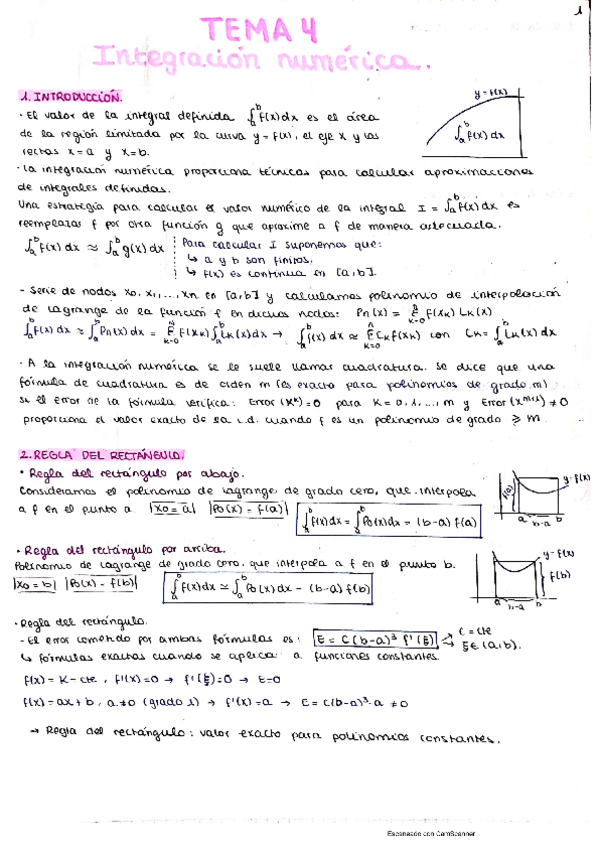 1
TEMA 4
Integración numérica.
1. INTRODUCCIÓN.
y = f(x)
∫ₐᵇ f(x) dx
· El valor de la integral definida ∫ₐᵇ f(x) dx es el área
de la región limitada por la curva y = f(x), el eje x y las
rectas x=a y x=b.
· La integración numérica proporciona técnicas para calcular aproximaciones
de integrales definidas.
Una estrategia para calcular el valor numérico de la integral I = ∫ₐᵇ f(x) dx es
reemplazar f por otra función g que aproxime a f de manera adecuada.
∫ₐᵇ f(x) dx ≈ ∫ₐᵇ g(x) dx Para calcular I suponemos que:
↳ a y b son finitos.
↳ f(x) es continua en [a,b].
- Serie de nodos x₀, x₁, ..., xₙ en [a,b] y calculamos polinomio de interpolación
de Lagrange de la función f en dichos nodos: Pₙ(x) = Σₖ₌₀ⁿ f(xₖ) Lₖ(x)
∫ₐᵇ f(x) dx ≈ ∫ₐᵇ Pₙ(x) dx = Σₖ₌₀ⁿ f(xₖ) ∫ₐᵇ Lₖ(x) dx → ∫ₐᵇ f(x) dx ≈ Σₖ₌₀ⁿ Cₖ f(xₖ) con Cₖ = ∫ₐᵇ Lₖ(x) dx
· A la integración numérica se le suele llamar cuadratura. Se dice que una
fórmula de cuadratura es de orden m (es exacta para polinomios de grado m)
si el error de la fórmula verifica: Error (xᵏ) = 0 para k = 0, 1, ..., m y Error (xᵐ⁺¹) ≠ 0
proporciona el valor exacto de la i.d. cuando f es un polinomio de grado ⩾ m.
2. REGLA DEL RECTÁNGULO.
· Regla del rectángulo por abajo.
Consideramos el polinomio de Lagrange de grado cero, que interpola
a f en el punto a |x₀ = a| |P₀(x) = f(a)| ∫ₐᵇ f(x) dx = ∫ₐᵇ P₀(x) dx = (b-a) f(a)
f(a) y=f(x)
a b-a b
· Regla del rectángulo por arriba.
Polinomio de Lagrange de grado cero, que interpola a f en el punto b.
|x₀ = b| |P₀(x) = f(b)| ∫ₐᵇ f(x) dx ≃ ∫ₐᵇ P₀(x) dx = (b-a) f(b)
y=f(x)
f(b)
a b-a b
· Regla del rectángulo.
- El error cometido por ambas fórmulas es: E = C (b-a)² f'(ξ) C = cte
ξ ∈ (a,b).
↳ fórmulas exactas cuando se aplica a funciones constantes.
f(x) = K = cte, f'(x) = 0 → f'(ξ) = 0 → E=0
f(x) = ax + b, a ≠ 0 (grado 1) → f'(x) = a → E = C(b-a)² · a ≠ 0
→ Regla del rectángulo: valor exacto para polinomios constantes.
Escaneado con CamScanner